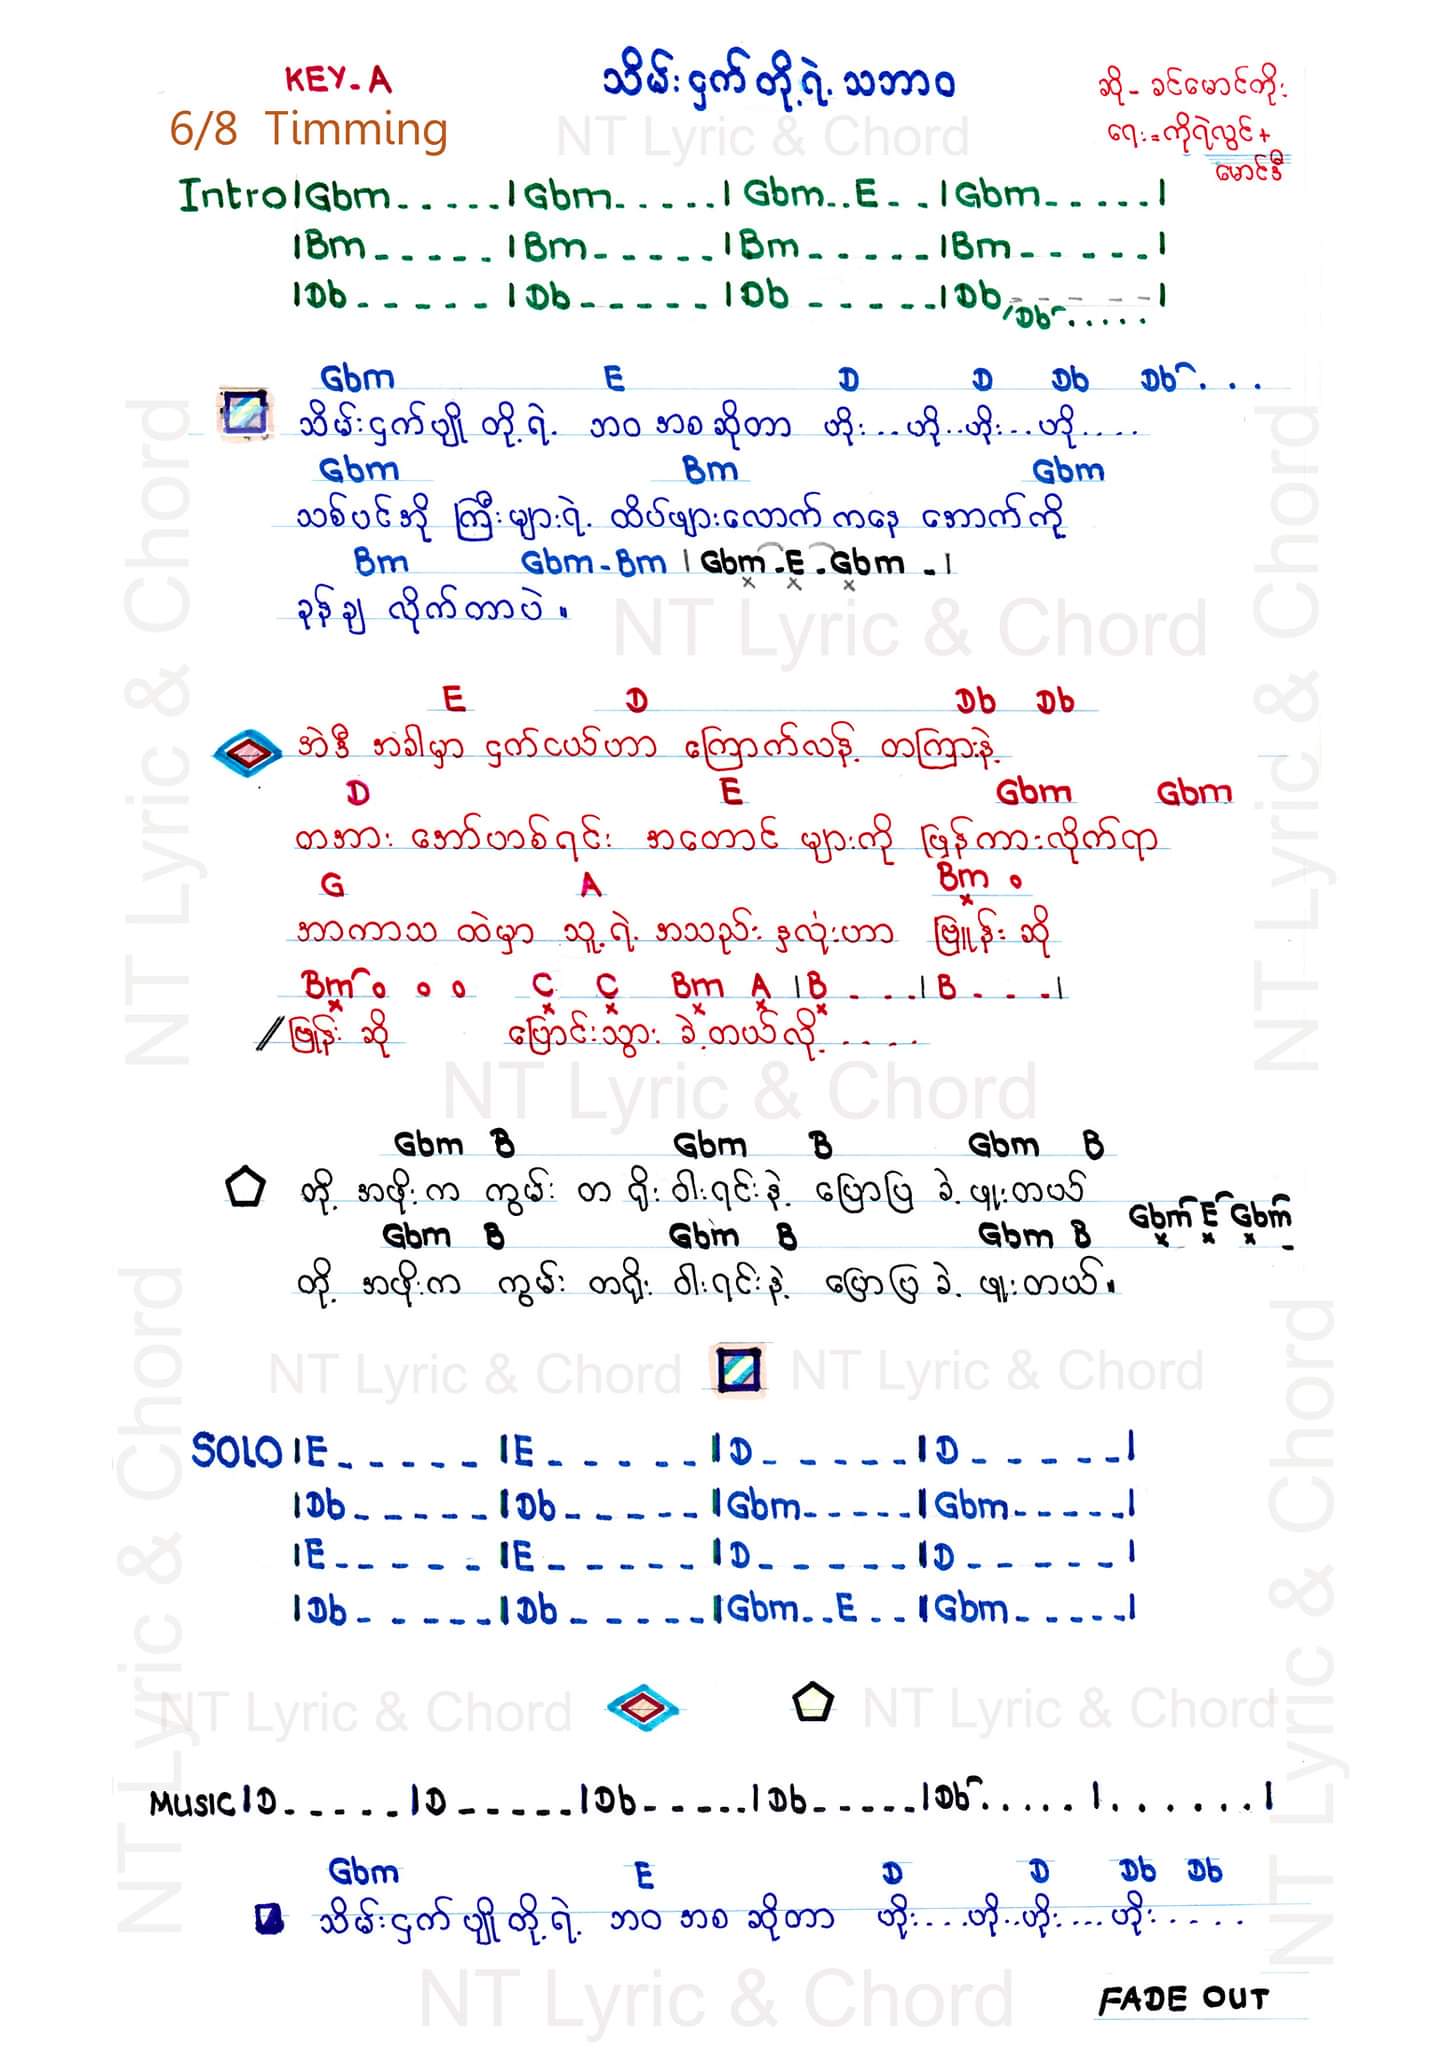 KEY-A
သိမ်းငှက်တို့ရဲ့သဘာဝ
ဆို - ခင်မောင်တိုး
6/8 Timming
ရေး = ကိုရဲလွင် +
မောင်ဒီ
NT Lyric & Chord
Intro|Gbm.....|Gbm.....|Gbm..E..|Gbm.....|
|Bm.....|Bm.....|Bm.....|Bm.....|
|Db.....|Db.....|Db.....|Db.....|
/Db.....
Gbm E D D Db Db...
သိမ်းငှက်ပျိုတို့ရဲ့ ဘဝအစဆိုတာ ဟိုး...ဟို..ဟိုး...ဟို....
Gbm Bm Gbm
သစ်ပင်အိုကြီးများရဲ့ ထိပ်ဖျားလောက်ကနေ အောက်ကို
Bm Gbm-Bm |Gbm.E.Gbm-|
ခုန်ချ လိုက်တာပဲ။
NT Lyric & Chord
E D Db Db
အဲဒီ အခါမှာ ငှက်ငယ်ဟာ ကြောက်လန့် တကြားနဲ့
D E Gbm Gbm
တအား အော်ဟစ်ရင်း အတောင် များကို ဖြန့်ကားလိုက်ရာ
G A Bm
အာကာသ ထဲမှာ သူ့ရဲ့ အသည်း နှလုံးဟာ ဗြုန်း ဆို
Bm C C Bm A |B....|B....|
//ဗြုန်း ဆို ပြောင်းသွား ခဲ့တယ်လို့.....
NT Lyric & Chord
Gbm B Gbm B Gbm B
တို့ အဖိုးက ကွမ်း တမြုံ့ ဝါးရင်းနဲ့ ပြောပြ ခဲ့ဖူးတယ်
Gbm E Gbm
Gbm B Gbm B Gbm B
တို့ အဖိုးက ကွမ်း တမြုံ့ ဝါးရင်းနဲ့ ပြောပြ ခဲ့ ဖူးတယ်။
NT Lyric & Chord NT Lyric & Chord
SOLO|E.....|E.....|D.....|D.....|
|Db.....|Db.....|Gbm.....|Gbm.....|
|E.....|E.....|D.....|D.....|
|Db.....|Db.....|Gbm..E..|Gbm.....|
NT Lyric & Chord NT Lyric & Chord
MUSIC|D.....|D.....|Db.....|Db.....|Db.....|......|
Gbm E D D Db Db
သိမ်းငှက်ပျိုတို့ရဲ့ ဘဝအစ ဆိုတာ ဟိုး....ဟို..ဟိုး... ဟိုး.....
NT Lyric & Chord
FADE OUT
NT Lyric & Chord
NT Lyric & Chord
NT Lyric & Chord
NT Lyric & Chord